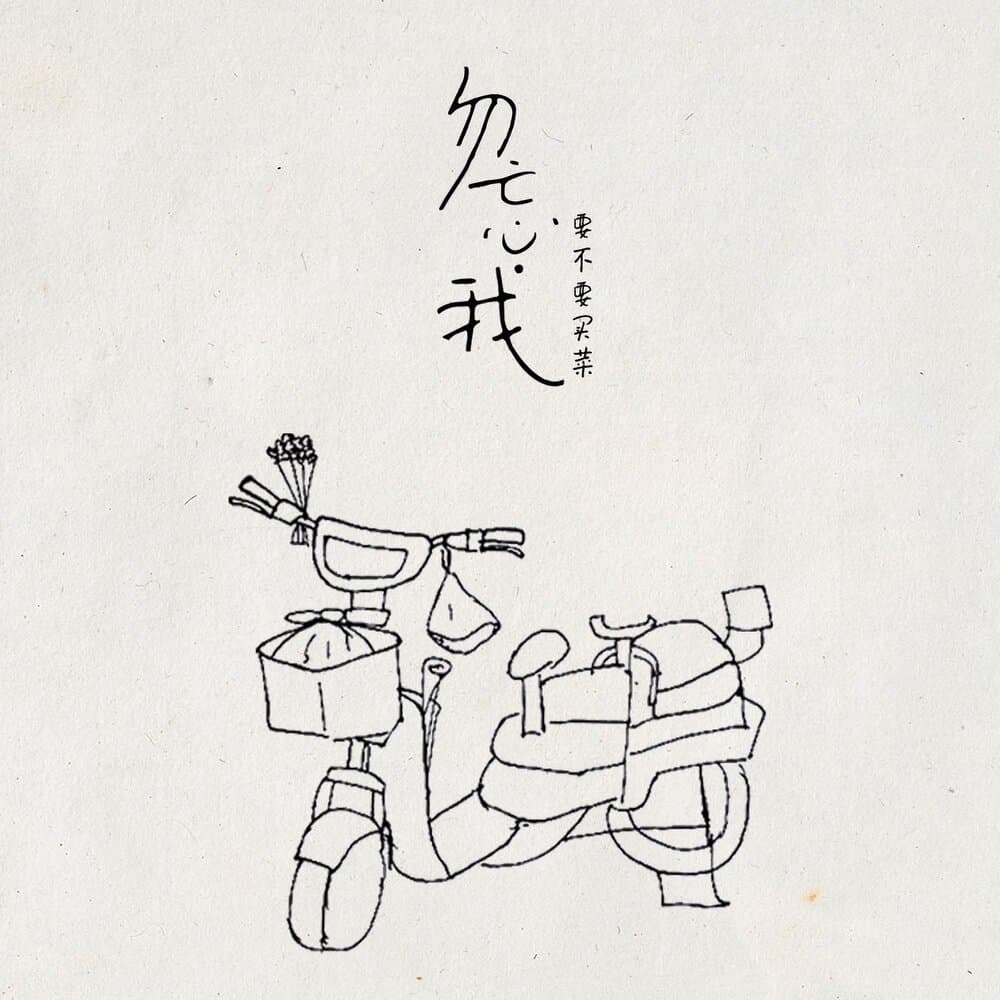 勿忘我
要不要买菜